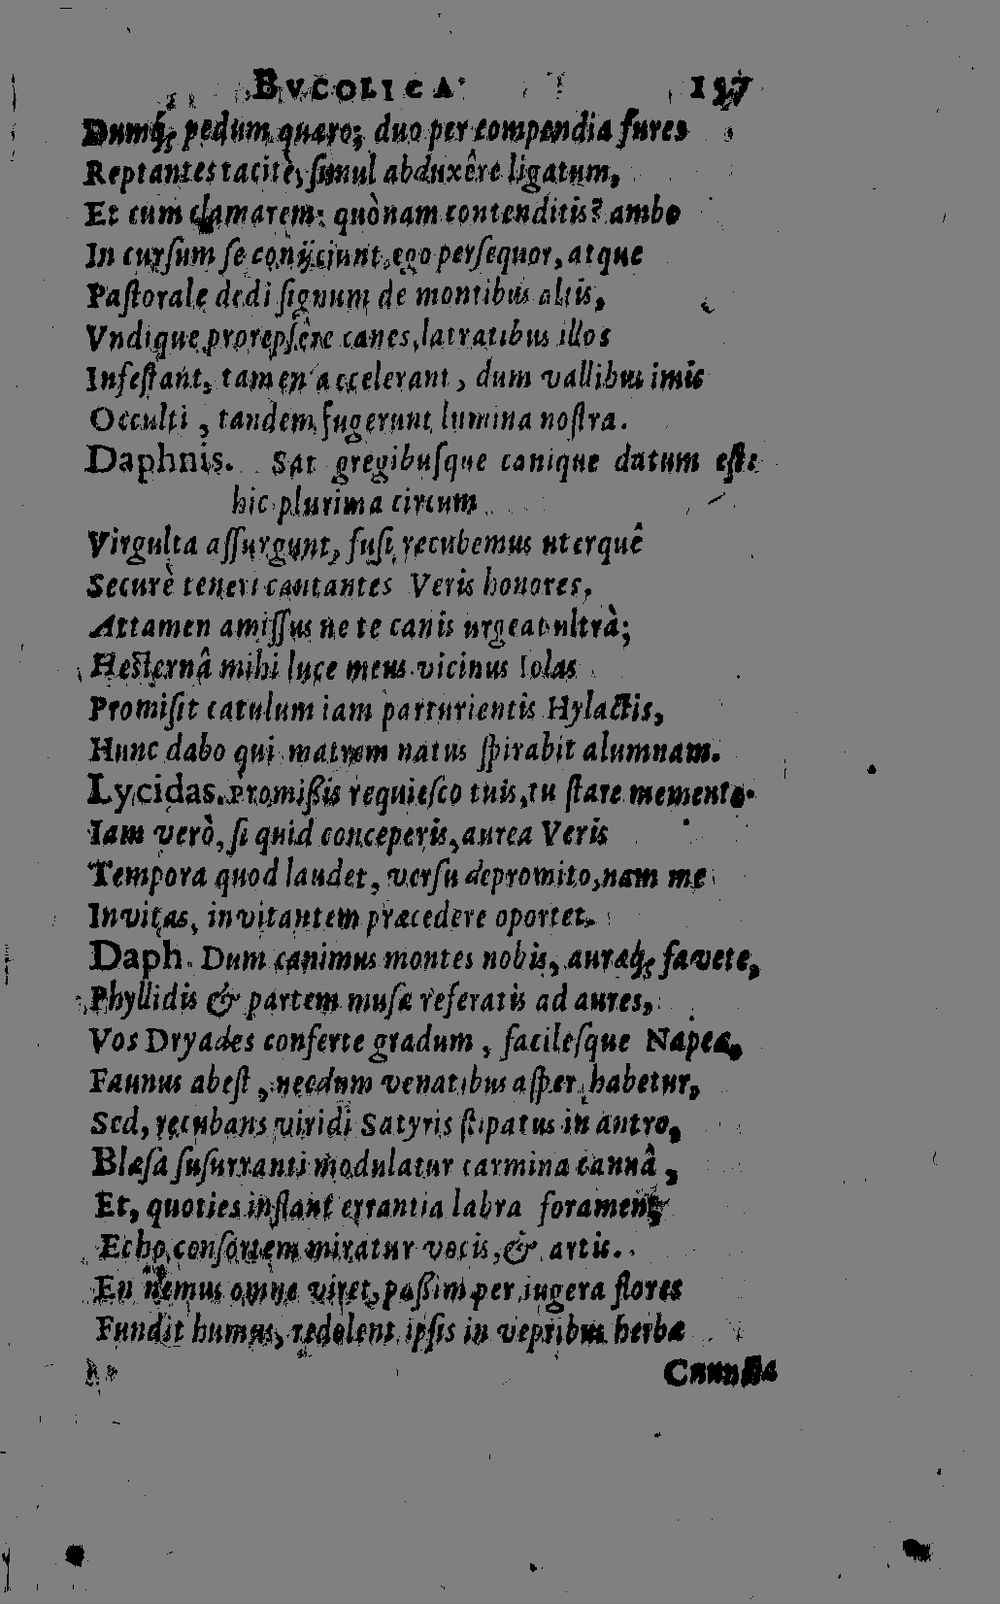 BVCOLICA 137
Dumq́; pedum quæro; duo per compendia fures
Reptantes tacitè, simul abduxêre ligatum,
Et cum clamarem: quònam contenditis? ambo
In cursum se conijciunt, ego persequor, atque
Pastorale dedi signum de montibus altis,
Vndique prorepsêre canes, latratibus illos
Infestant, tamen accelerant, dum vallibus imis
Occulti, tandem fugerunt lumina nostra.
Daphnis. Sat gregibusque canique datum est:
hic plurima circum
Virgulta assurgunt, fusi recubemus uterquê
Securè teneri cantantes Veris honores,
Attamen amissus ne te canis urgeat ultrà;
Hesternâ mihi luce meus vicinus Iolas
Promisit catulum iam parturientis Hylactis,
Hunc dabo qui matrem natus spirabit alumnam.
Lycidas. Promißis requiesco tuis, tu stare memento.
Iam verò, si quid conceperis, aurea Veris
Tempora quod laudet, versu depromito, nam me
Invitas, invitantem præcedere oportet.
Daph. Dum canimus montes nobis, auræq́; favete,
Phyllidis & partem musæ referatis ad aures,
Vos Dryades conferte gradum, facilesque Napeæ,
Faunus abest, necdum venatibus asper habetur,
Sed, recubans viridi Satyris stipatus in antro,
Blæsa susurranti modulatur carmina cannâ,
Et, quoties instant errantia labra forament,
Echo consortem miratur vocis, & artis.
En nemus omne viret, paßim per iugera flores
Fundit humus, redolent ipsis in vepribus herbæ
Cuncta